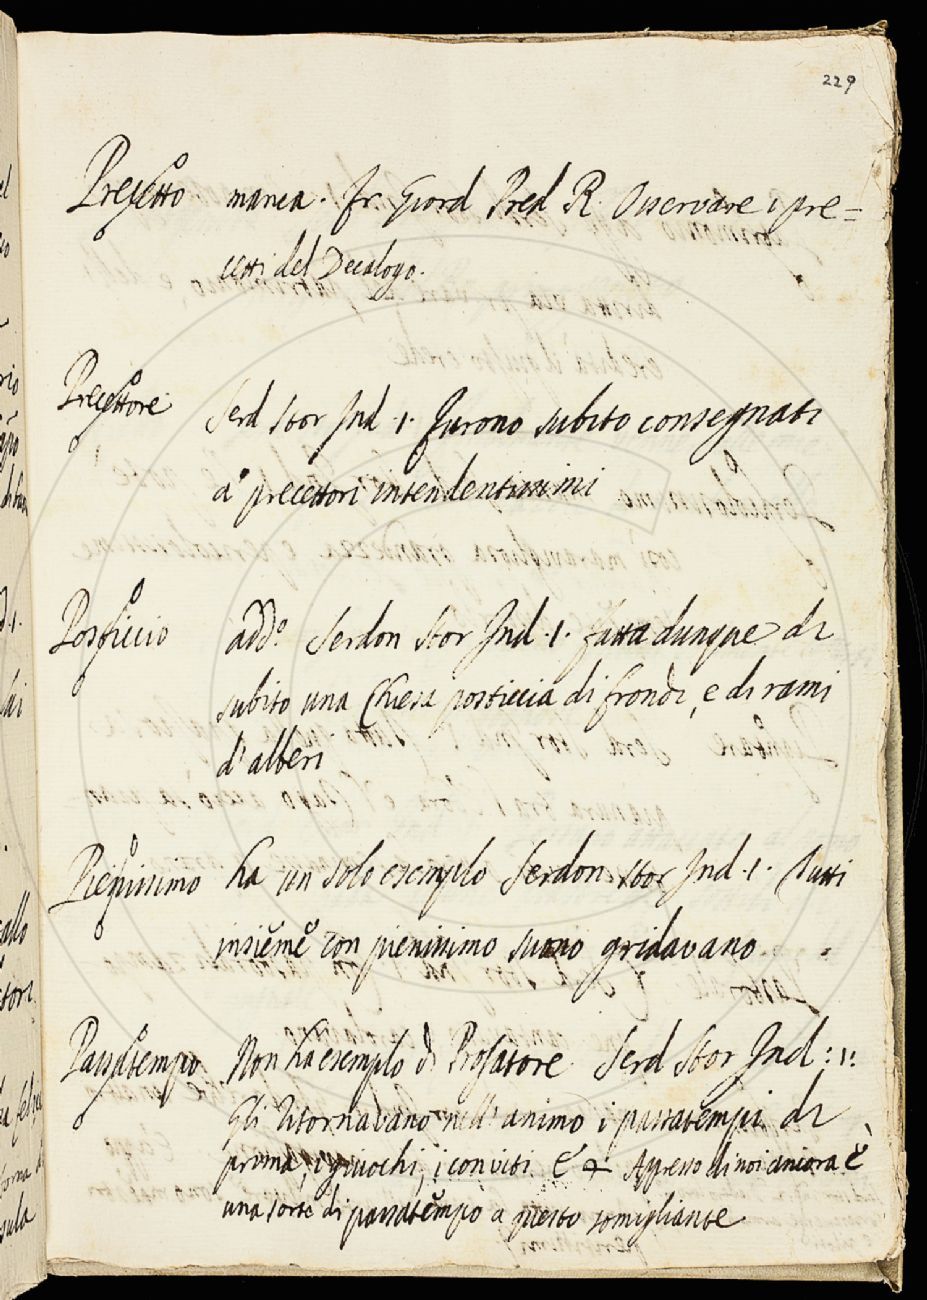 229
Precetto manca. fr. Giord Pred R. Osservare i pre=
cetti del Decalogo.
Precettore Serd stor Ind 1. furono subito consegnati
a precettori intendentissimi
Posticcio add.o Serdon stor Ind. 1. fatta dunque di
subito una Chiesa posticcia di frondi, e di rami
d'alberi
Pienissimo ha un solo esempio Serdon stor Ind. 1. Tutti
insieme con pienissimo suono gridavano
Passatempo Non ha esempio di Prosatore Serd Stor Ind: 1:
Gli ritornavano nell'animo i passatempi di
prima, i giuochi, i conviti E 4 Appresso di noi ancora è
una sorte di passatempo a questo somigliante